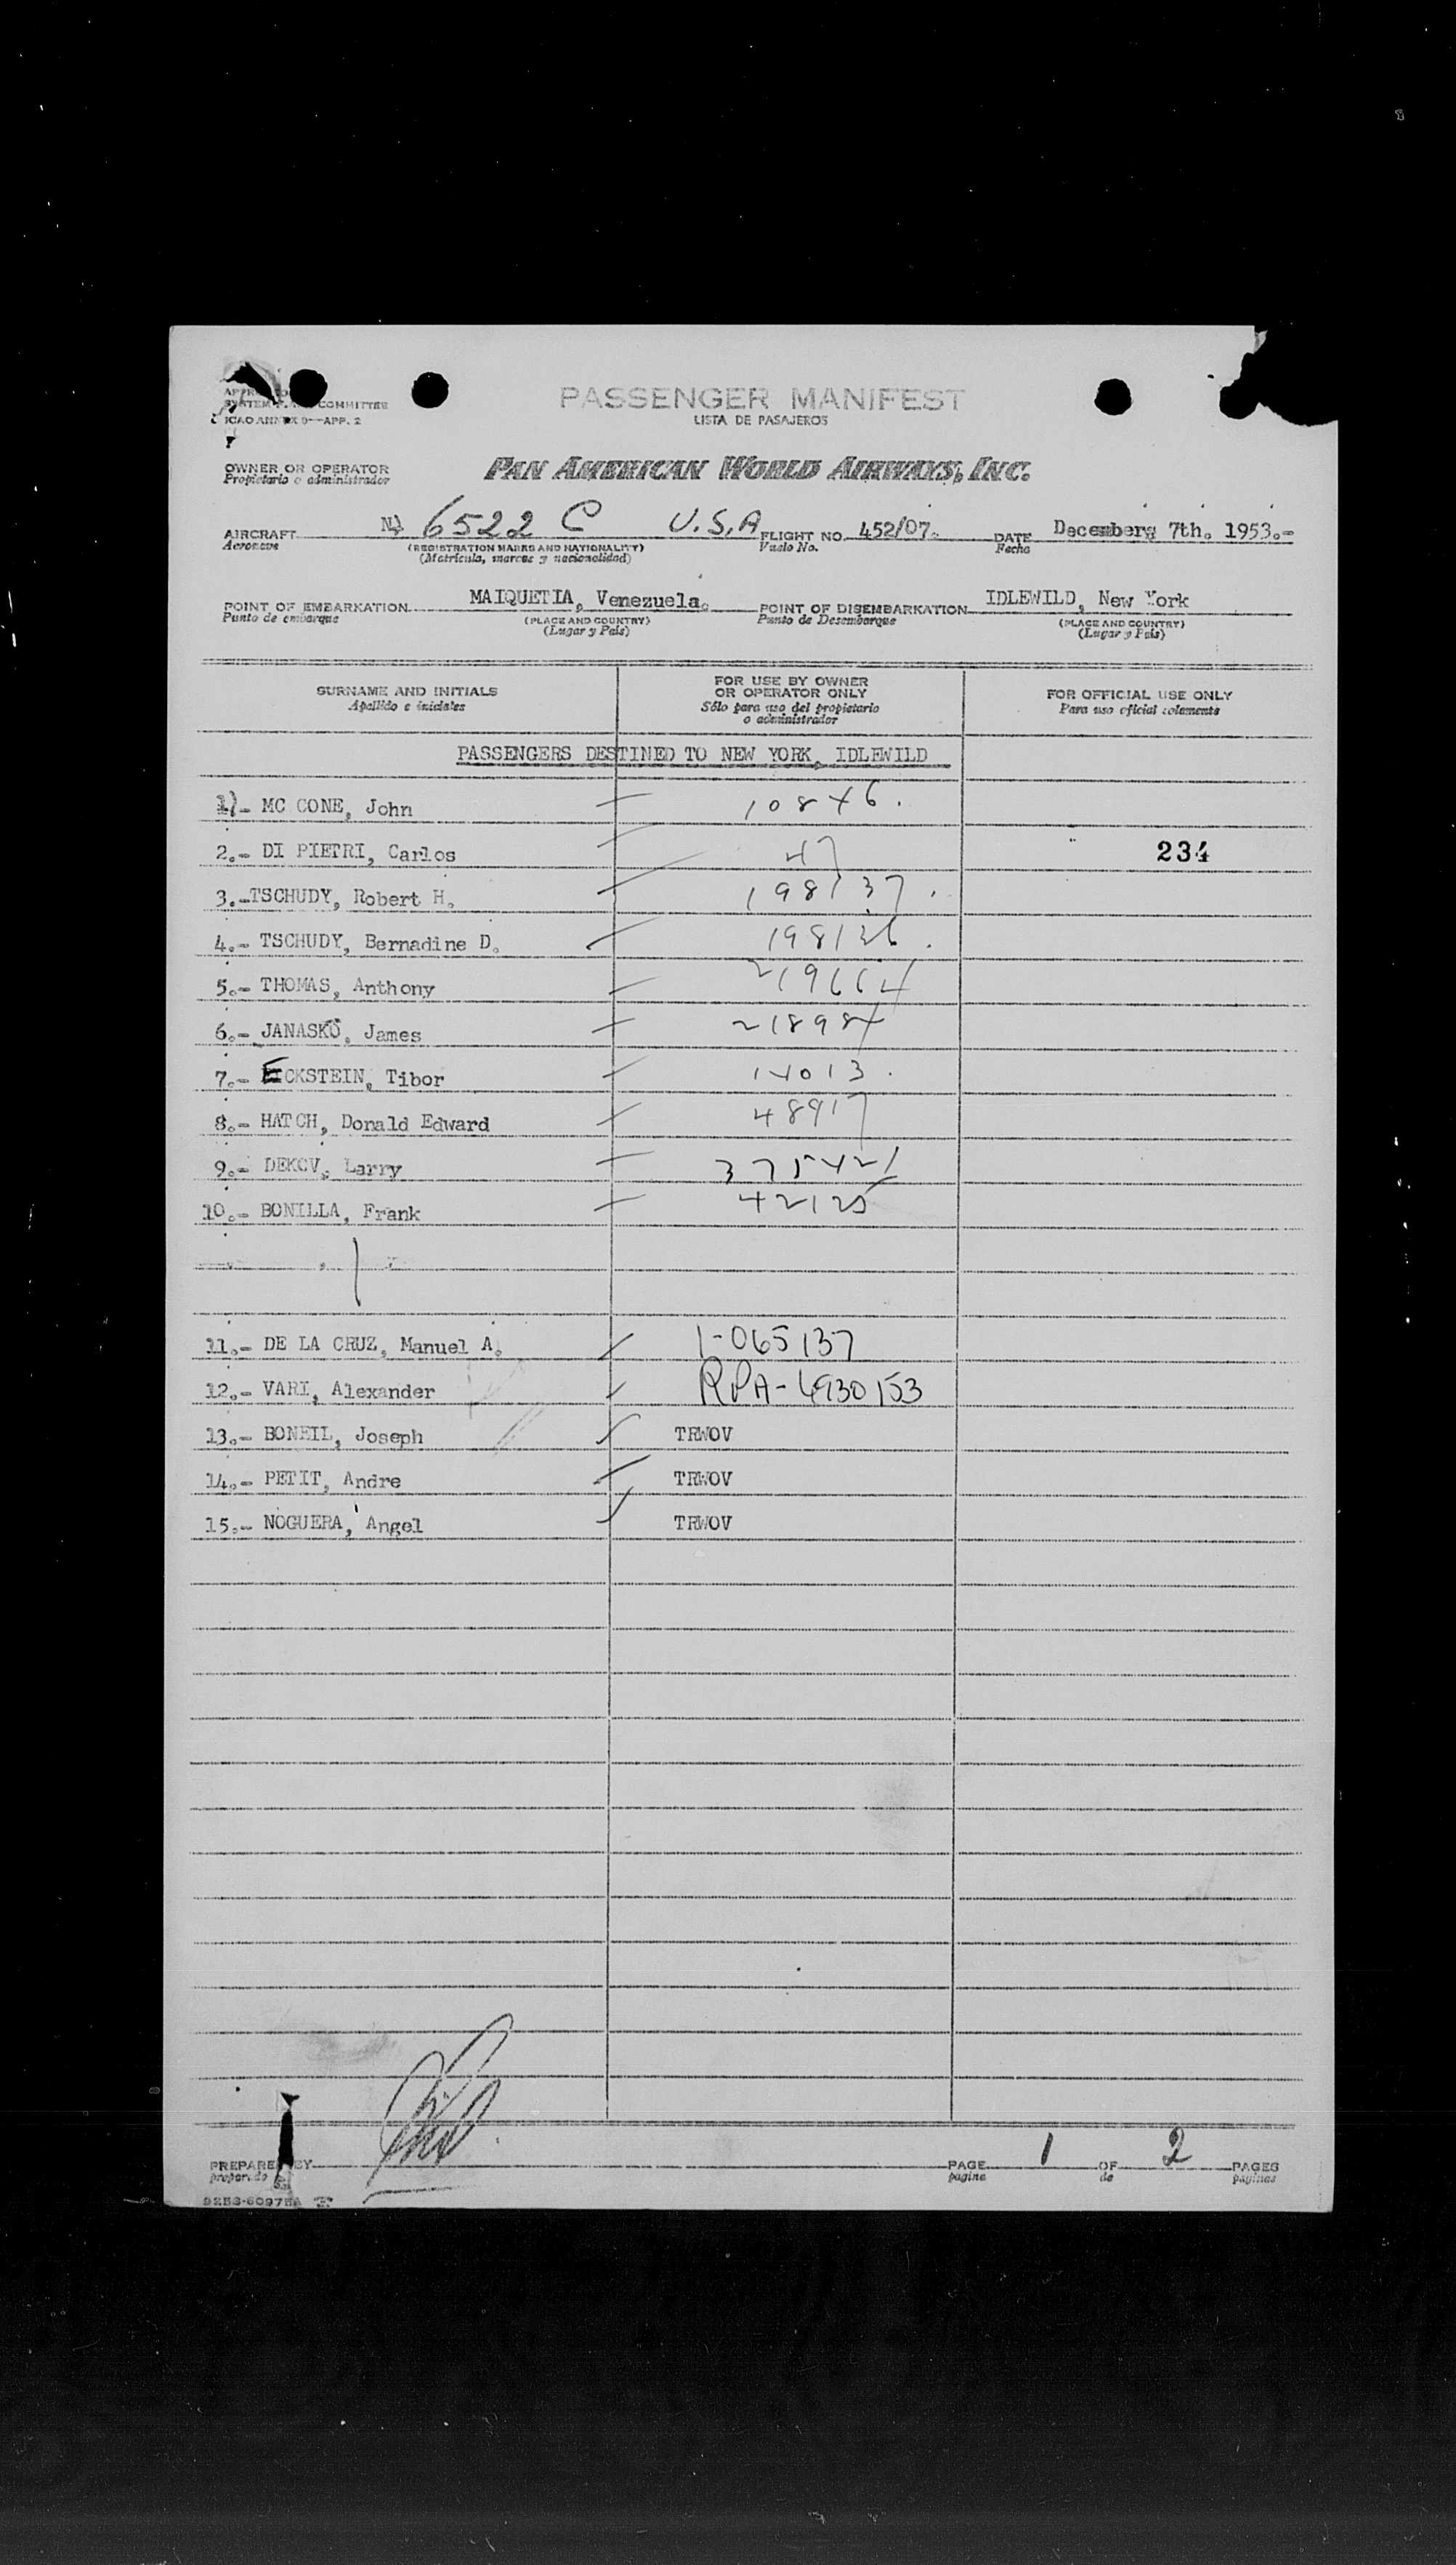 PASSENGER MANIFEST
LISTA DE PASAJEROS
COMMITTEE
ICAO ANNEX 9—APP. 2
OWNER OR OPERATOR
Propietario o administrador
PAN AMERICAN WORLD AIRWAYS, INC.
AIRCRAFT N 6522 C U.S.A FLIGHT NO. 452/07. DATE December 7th. 1953.-
Aeronave (REGISTRATION MARKS AND NATIONALITY) Vuelo No. Fecha
(Matrícula, marcas y nacionalidad)
POINT OF EMBARKATION MAIQUETIA, Venezuela. POINT OF DISEMBARKATION IDLEWILD, New York
Punto de embarque (PLACE AND COUNTRY) Punto de Desembarque (PLACE AND COUNTRY)
(Lugar y País) (Lugar y País)
SURNAME AND INITIALS
Apellido e iniciales
FOR USE BY OWNER
OR OPERATOR ONLY
Sólo para uso del propietario
o administrador
FOR OFFICIAL USE ONLY
Para uso oficial solamente
PASSENGERS DESTINED TO NEW YORK, IDLEWILD
1)- MC CONE, John 10846.
2.- DI PIETRI, Carlos 47 234
3.-TSCHUDY, Robert H. 198137.
4.- TSCHUDY, Bernadine D. 198136.
5.- THOMAS, Anthony 219664
6.- JANASKO, James 21898
7.- ECKSTEIN, Tibor 14013.
8.- HATCH, Donald Edward 48917
9.- DEKOV, Larry 375421
10.- BONILLA, Frank 42125
11.- DE LA CRUZ, Manuel A. 1-065137
12.- VARI, Alexander RPA-4930153
13.- BONEIL, Joseph TRWOV
14.- PETIT, Andre TRWOV
15.- NOGUERA, Angel TRWOV
PREPARED BY PAGE 1 OF 2 PAGES
página de páginas